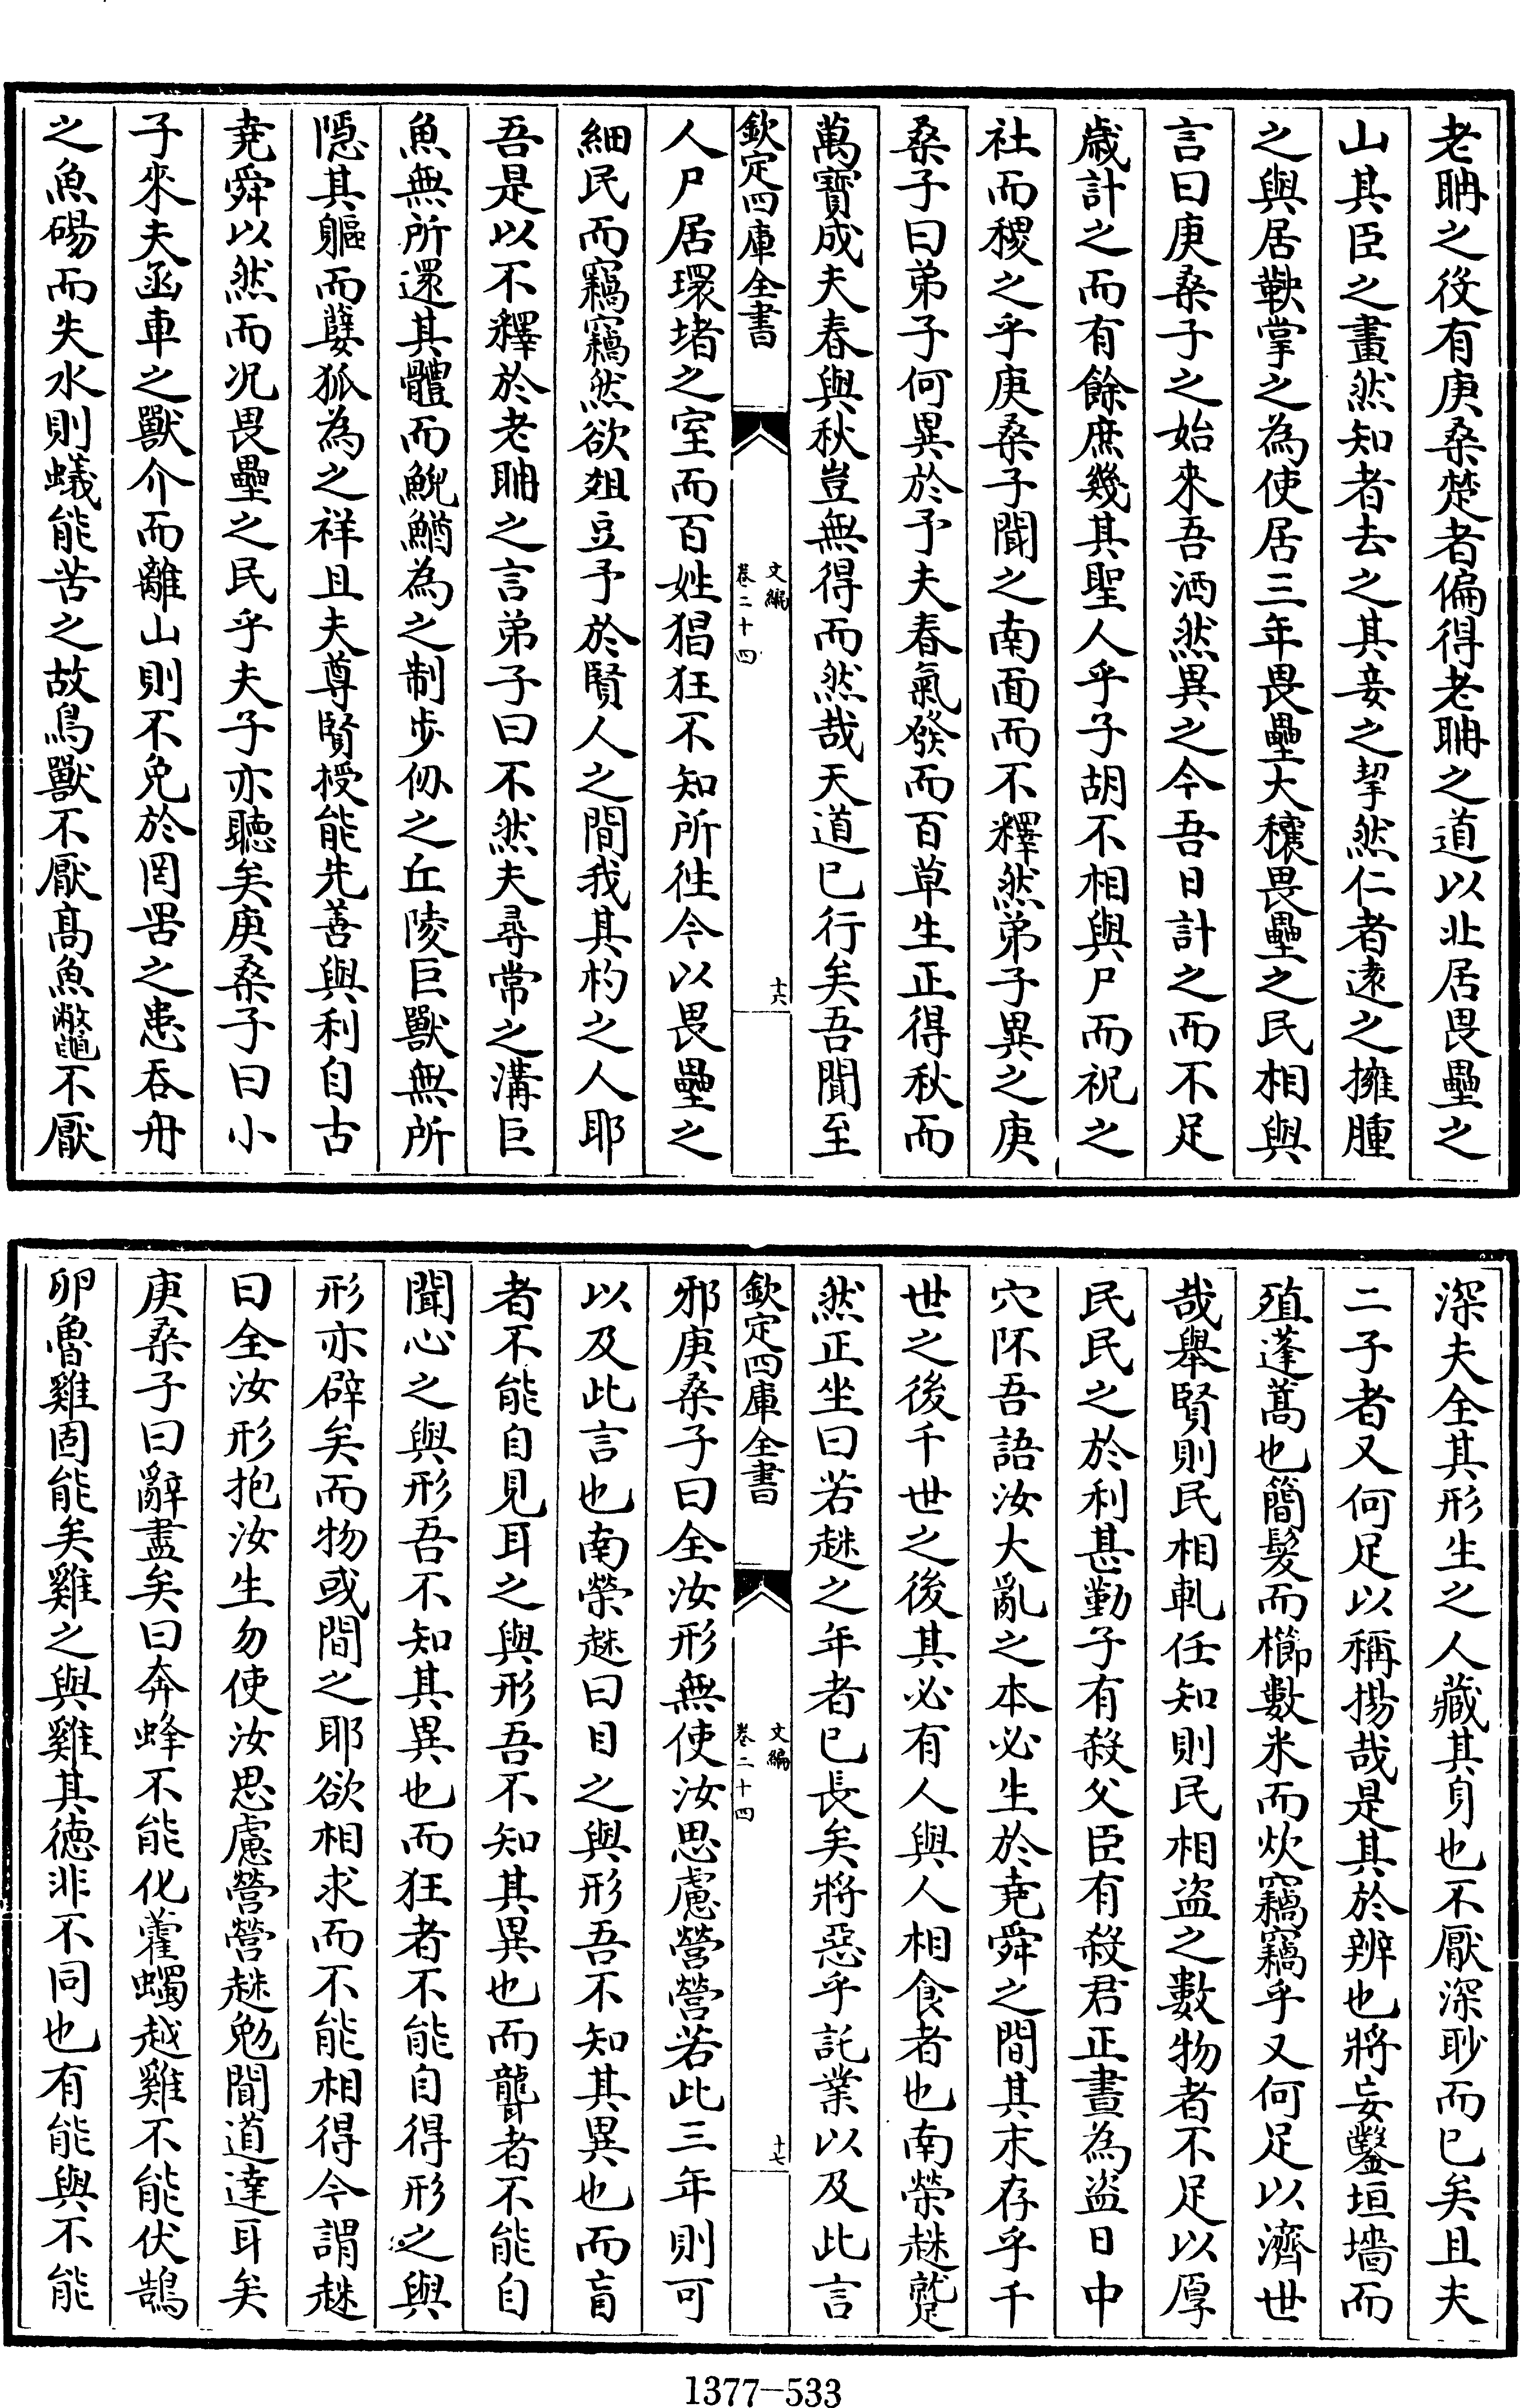 老聃之役有庚桑楚者偏得老聃之道以北居畏壘之
山其臣之畫然知者去之其妾之挈然仁者逺之擁腫
之與居鞅掌之為使居三年畏壘大穰畏壘之民相與
言曰庚桑子之始來吾洒然異之今吾日計之而不足
歳計之而有餘庶幾其聖人乎子胡不相與尸而祝之
社而稷之乎庚桑子聞之南面而不釋然弟子異之庚
桑子曰弟子何異於予夫春氣發而百草生正得秋而
萬寳成夫春與秋豈無得而然哉天道已行矣吾聞至
欽定四庫全書
文編
卷二十四
十六
人尸居環堵之室而百姓猖狂不知所徃今以畏壘之
細民而竊竊然欲俎豆予於賢人之間我其杓之人耶
吾是以不釋於老聃之言弟子曰不然夫尋常之溝巨
魚無所還其體而鯢鰌為之制步仞之丘陵巨獸無所
隠其軀而㜸狐為之祥且夫尊賢授能先善與利自古
堯舜以然而况畏壘之民乎夫子亦聽矣庚桑子曰小
子來夫函車之獸介而離山則不免於罔罟之患吞舟
之魚碭而失水則蟻能苦之故鳥獸不厭髙魚鼈不厭
深夫全其形生之人藏其身也不厭深眇而已矣且夫
二子者又何足以稱揚哉是其於辨也將妄鑿垣墻而
殖蓬蒿也簡髮而櫛數米而炊竊竊乎又何足以濟世
哉舉賢則民相軋任知則民相盗之數物者不足以厚
民民之於利甚勤子有殺父臣有殺君正晝為盗日中
穴阫吾語汝大亂之本必生於堯舜之間其末存乎千
世之後千世之後其必有人與人相食者也南榮趎蹵
然正坐曰若趎之年者已長矣將惡乎託業以及此言
欽定四庫全書
文編
卷二十四
十七
邪庚桑子曰全汝形無使汝思慮營營若此三年則可
以及此言也南榮趎曰目之與形吾不知其異也而盲
者不能自見耳之與形吾不知其異也而聾者不能自
聞心之與形吾不知其異也而狂者不能自得形之與
形亦辟矣而物或間之耶欲相求而不能相得今謂趎
曰全汝形抱汝生勿使汝思慮營營趎勉聞道達耳矣
庚桑子曰辭盡矣曰奔蜂不能化藿蠋越雞不能伏鵠
卵魯雞固能矣雞之與雞其徳非不同也有能與不能
1377-533